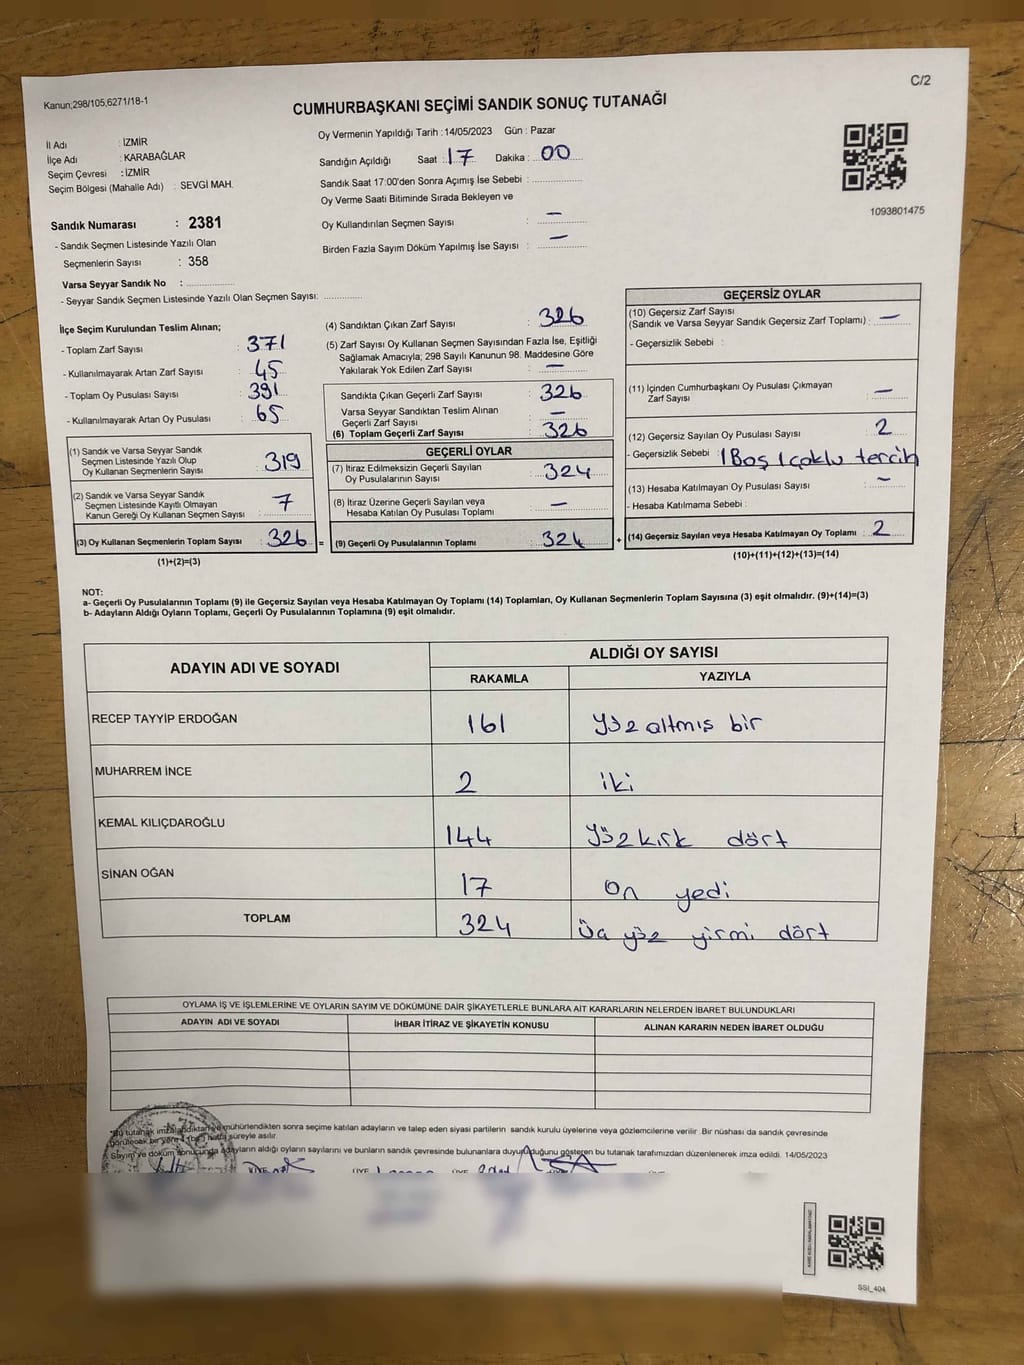 C/2
Kanun;298/105,6271/18-1
CUMHURBAŞKANI SEÇİMİ SANDIK SONUÇ TUTANAĞI
İl Adı : İZMİR
İlçe Adı : KARABAĞLAR
Seçim Çevresi : İZMİR
Seçim Bölgesi (Mahalle Adı) : SEVGİ MAH.
Oy Vermenin Yapıldığı Tarih :14/05/2023 Gün : Pazar
Sandığın Açıldığı Saat : 17 Dakika : 00
Sandık Saat 17:00'den Sonra Açımış İse Sebebi :
Oy Verme Saati Bitiminde Sırada Bekleyen ve
Oy Kullandırılan Seçmen Sayısı : —
Birden Fazla Sayım Döküm Yapılmış İse Sayısı : —
1093801475
Sandık Numarası : 2381
- Sandık Seçmen Listesinde Yazılı Olan
Seçmenlerin Sayısı : 358
Varsa Seyyar Sandık No :
- Seyyar Sandık Seçmen Listesinde Yazılı Olan Seçmen Sayısı:
İlçe Seçim Kurulundan Teslim Alınan;
- Toplam Zarf Sayısı : 371
- Kullanılmayarak Artan Zarf Sayısı : 45
- Toplam Oy Pusulası Sayısı : 391
- Kullanılmayarak Artan Oy Pusulası : 65
(1) Sandık ve Varsa Seyyar Sandık
Seçmen Listesinde Yazılı Olup
Oy Kullanan Seçmenlerin Sayısı : 319
(2) Sandık ve Varsa Seyyar Sandık
Seçmen Listesinde Kayıtlı Olmayan
Kanun Gereği Oy Kullanan Seçmen Sayısı : 7
(3) Oy Kullanan Seçmenlerin Toplam Sayısı : 326 =
(1)+(2)=(3)
(4) Sandıktan Çıkan Zarf Sayısı : 326
(5) Zarf Sayısı Oy Kullanan Seçmen Sayısından Fazla İse, Eşitliği
Sağlamak Amacıyla; 298 Sayılı Kanunun 98. Maddesine Göre
Yakılarak Yok Edilen Zarf Sayısı : —
Sandıkta Çıkan Geçerli Zarf Sayısı : 326
Varsa Seyyar Sandıktan Teslim Alınan
Geçerli Zarf Sayısı : —
(6) Toplam Geçerli Zarf Sayısı : 326
GEÇERLİ OYLAR
(7) İtiraz Edilmeksizin Geçerli Sayılan
Oy Pusulalarının Sayısı : 324
(8) İtiraz Üzerine Geçerli Sayılan veya
Hesaba Katılan Oy Pusulası Toplamı : —
(9) Geçerli Oy Pusulalarının Toplamı : 324 +
GEÇERSİZ OYLAR
(10) Geçersiz Zarf Sayısı
(Sandık ve Varsa Seyyar Sandık Geçersiz Zarf Toplamı) : —
- Geçersizlik Sebebi :
(11) İçinden Cumhurbaşkanı Oy Pusulası Çıkmayan
Zarf Sayısı : —
(12) Geçersiz Sayılan Oy Pusulası Sayısı : 2
- Geçersizlik Sebebi : 1 Boş 1 çoklu tercih
(13) Hesaba Katılmayan Oy Pusulası Sayısı : —
- Hesaba Katılmama Sebebi :
(14) Geçersiz Sayılan veya Hesaba Katılmayan Oy Toplamı : 2
(10)+(11)+(12)+(13)=(14)
NOT:
a- Geçerli Oy Pusulalarının Toplamı (9) ile Geçersiz Sayılan veya Hesaba Katılmayan Oy Toplamı (14) Toplamları, Oy Kullanan Seçmenlerin Toplam Sayısına (3) eşit olmalıdır. (9)+(14)=(3)
b- Adayların Aldığı Oyların Toplamı, Geçerli Oy Pusulalarının Toplamına (9) eşit olmalıdır.
ADAYIN ADI VE SOYADI ALDIĞI OY SAYISI
RAKAMLA YAZIYLA
RECEP TAYYİP ERDOĞAN 161 Yüz altmış bir
MUHARREM İNCE 2 iki
KEMAL KILIÇDAROĞLU 144 Yüz kırk dört
SİNAN OĞAN 17 On yedi
TOPLAM 324 Üç yüz yirmi dört
OYLAMA İŞ VE İŞLEMLERİNE VE OYLARIN SAYIM VE DÖKÜMÜNE DAİR ŞİKAYETLERLE BUNLARA AİT KARARLARIN NELERDEN İBARET BULUNDUKLARI
ADAYIN ADI VE SOYADI İHBAR İTİRAZ VE ŞİKAYETİN KONUSU ALINAN KARARIN NEDEN İBARET OLDUĞU
*Bu tutanak imzalandıktan ve mühürlendikten sonra seçime katılan adayların ve talep eden siyasi partilerin sandık kurulu üyelerine veya gözlemcilerine verilir .Bir nüshası da sandık çevresinde
görülecek bir yere 1 (bir) hafta süreyle asılır.
Sayım ve döküm sonucunda adayların aldığı oyların sayılarını ve bunların sandık çevresinde bulunanlara duyurulduğunu gösteren bu tutanak tarafımızdan düzenlenerek imza edildi. 14/05/2023
ÜYE ÜYE
SSI_404